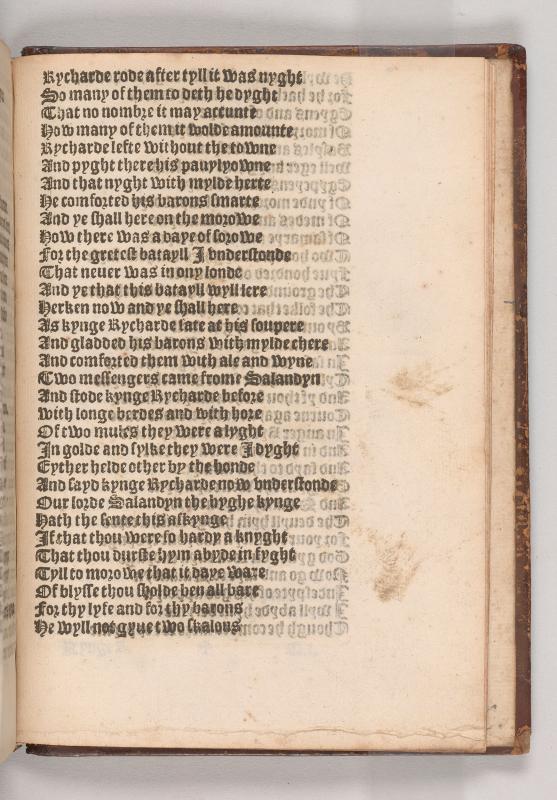 Rycharde rode after tyll it was nyght
So many of them to deth he dyght
That no nombre it may accunte
How many of them it wolde amounte
Rycharde lefte without the towne
And pyght there his pauylyowne
And that nyght with mylde herte
He comforted his barons smarte
And ye shall here on the morowe
How there was a daye of sorowe
For the gretest batayll I vnderstonde
That neuer was in ony londe
And ye that this batayll wyll lere
Herken now and ye shall here
As kynge Rycharde sate at his soupere
And gladded his barons with mylde chere
And comforted them with ale and wyne
Two messengers came frome Salandyn
And stode kynge Rycharde before
With longe berdes and with hore
Of two mules they were alyght
In golde and sylke they were I dyght
Eyther helde other by the honde
And sayd kynge Rycharde now vnderstonde
Our lorde Salandyn the hyghe kynge
Hath the sente this askynge
If that thou were so hardy a knyght
That thou durste hym abyde in fyght
Tyll to morowe that it daye ware
Of blysse thou sholde ben all bare
For thy lyfe and for thy barons
He wyll not gyue two skalous